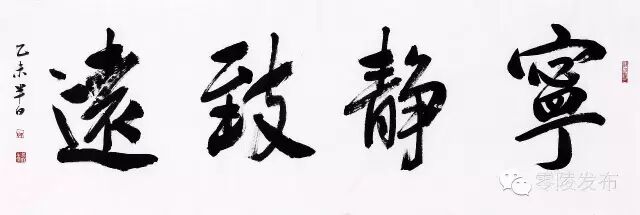 寧靜致遠
乙未
零陵发布